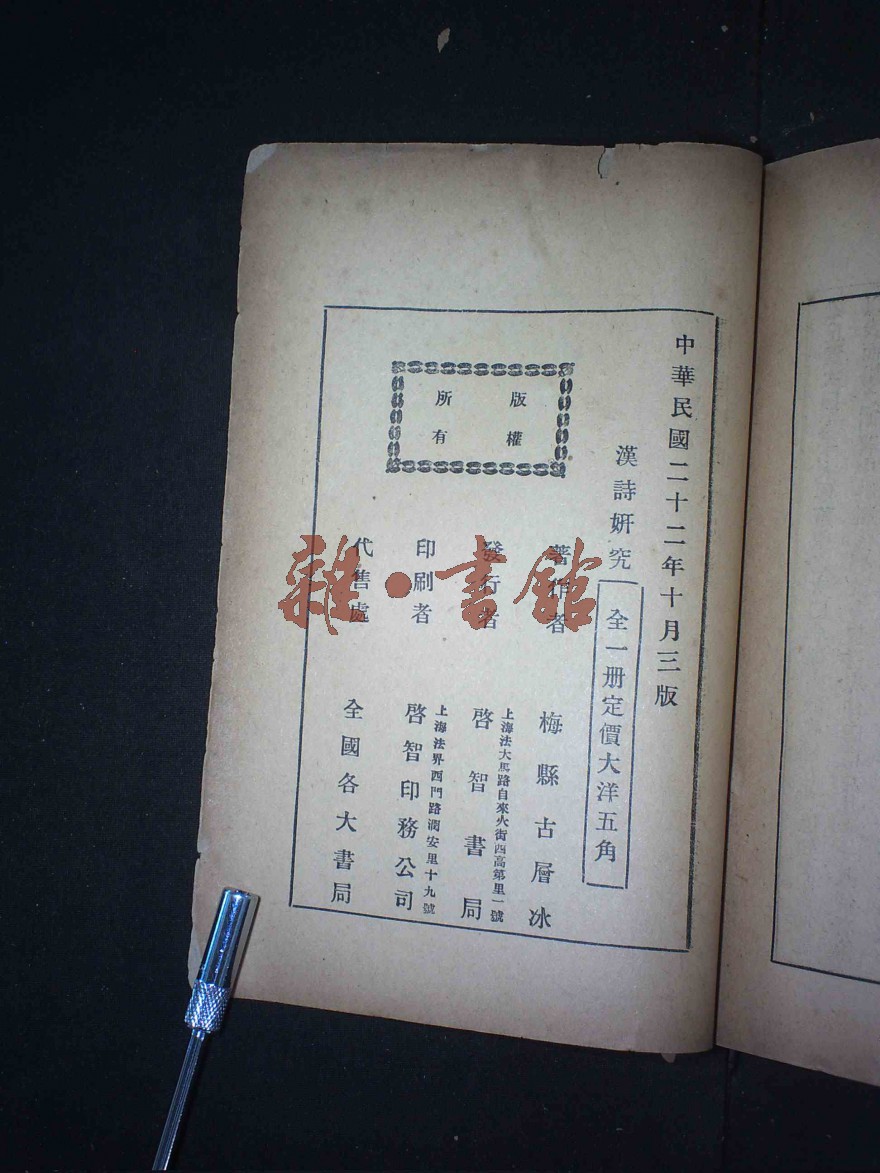 中華民國二十二年十月三版
漢詩姸究
全一册定價大洋五角
版權
所有
著作者
梅縣古層冰
發行者
上海法大馬路自來火街西高第里一號
啓智書局
印刷者
上海法界西門路潤安里十九號
啓智印務公司
代售處
全國各大書局
雜·書館